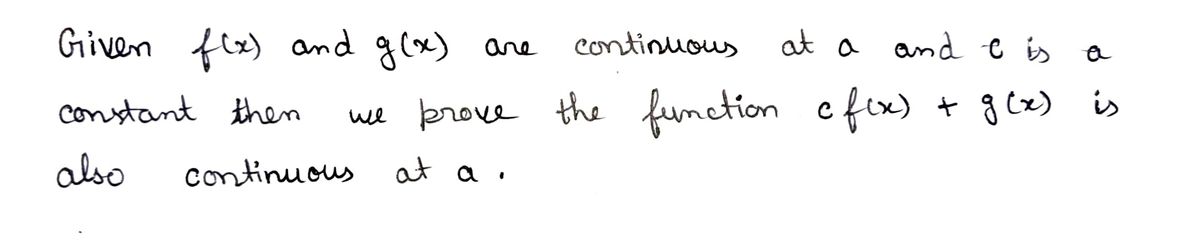 Given f(x) and g(x) are continuous at a and c is a
constant then we prove the function c f(x) + g(x) is
also continuous at a .